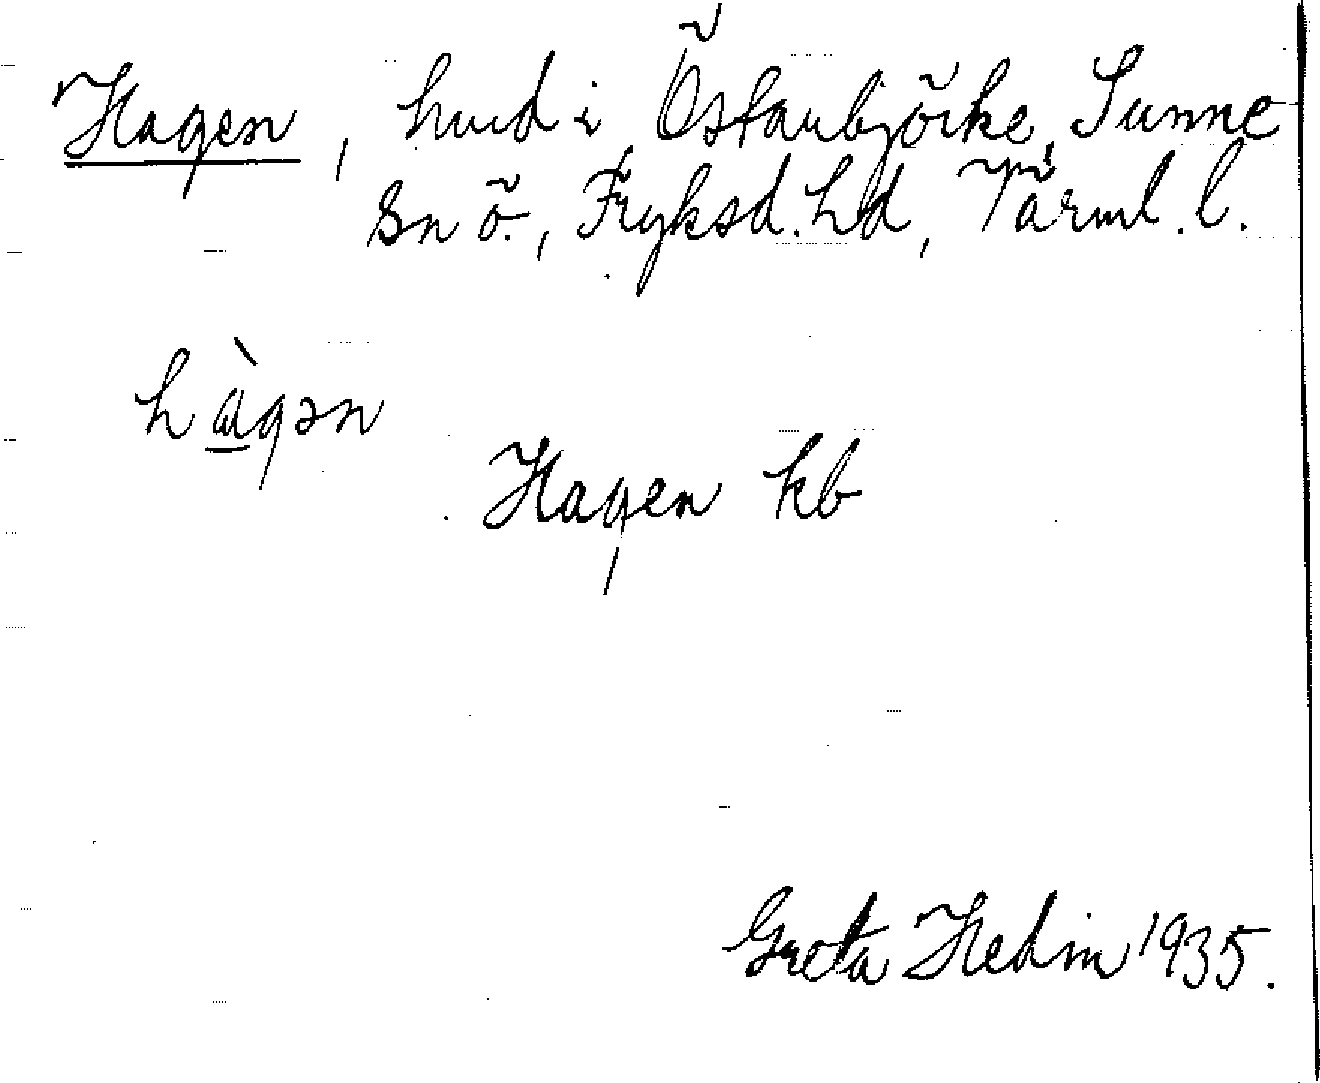 Hagen, hmd i Östanbjörke, Sunne
sn ö., Fryksd. hd, Värml. l.
hàgən
Hagen kb
Greta Hedin 1935.